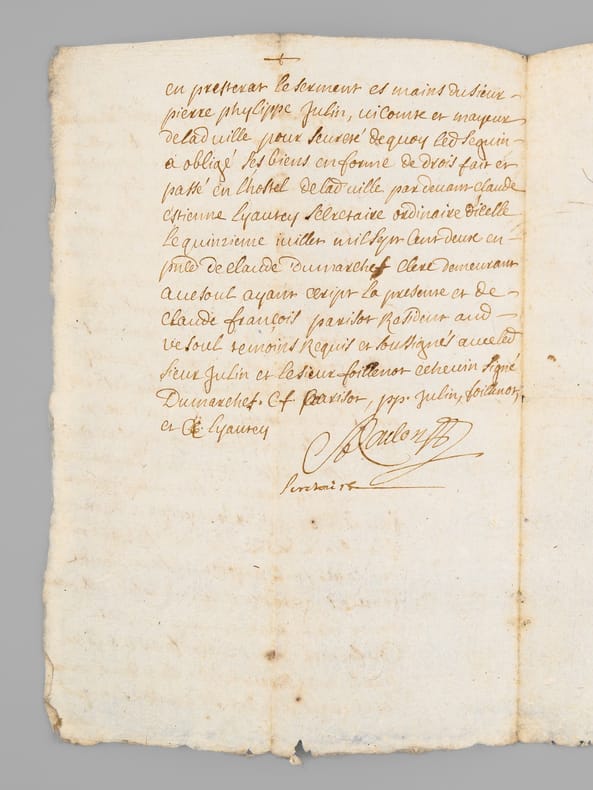 en presterat le serment es mains du sieur
pierre phylippe Julin, vicomte et mayeur
de lad ville pour seureté de quoy led Seguin
a obligé ses biens en forme de drois fait et
passé en l'hostel de lad ville pardevant claude
estienne lyautey secretaire ordinaire d'icelle
le quinzieme iuillet mil sept cent deux en
pnce de claude Dumarchef clerc demeurant
a vesoul ayant escript la presente et de
claude françois parisot Resident aud
vesoul temoins Requis et soussignés avec led
sieur Julin et le sieur foillenot echevin signé
Dumarchef. C f parisot, pp. Julin, foillenot,
et C E. lyautey
secretaire